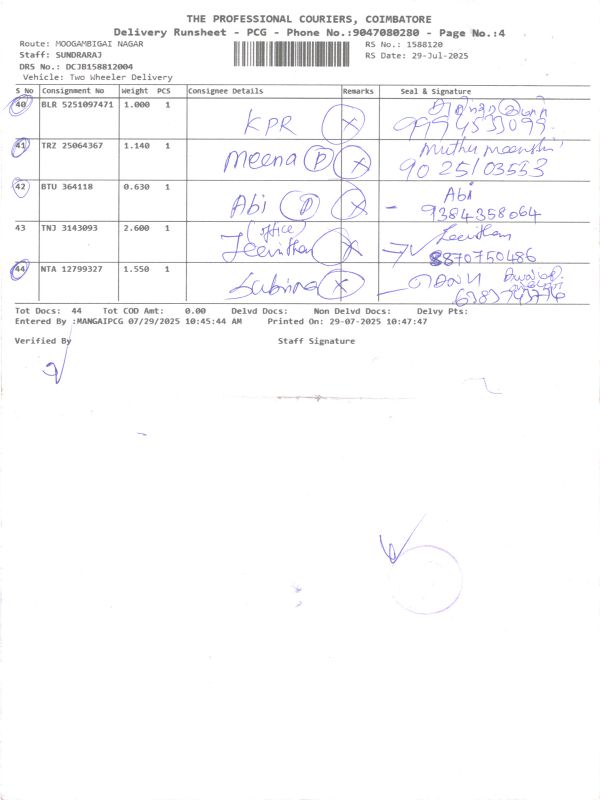 THE PROFESSIONAL COURIERS, COIMBATORE
Delivery Runsheet - PCG - Phone No.:9047080280 - Page No.:4
Route: MOOGAMBIGAI NAGAR RS No.: 1588120
Staff: SUNDRARAJ RS Date: 29-Jul-2025
DRS No.: DCJB158812004
Vehicle: Two Wheeler Delivery
S No Consignment No Weight PCS Consignee Details Remarks Seal & Signature
40 BLR 5251097471 1.000 1 KPR X
41 TRZ 25064367 1.140 1 Meena D X Muthu meenshi
90 25103553
42 BTU 364118 0.630 1 Abi D X - Abi
9384358064
43 TNJ 3143093 2.600 1 (office) X
8870750486
44 NTA 12799327 1.550 1 Sabrina X
6383743776
Tot Docs: 44 Tot COD Amt: 0.00 Delvd Docs: Non Delvd Docs: Delvy Pts:
Entered By :MANGAIPCG 07/29/2025 10:45:44 AM Printed On: 29-07-2025 10:47:47
Verified By Staff Signature